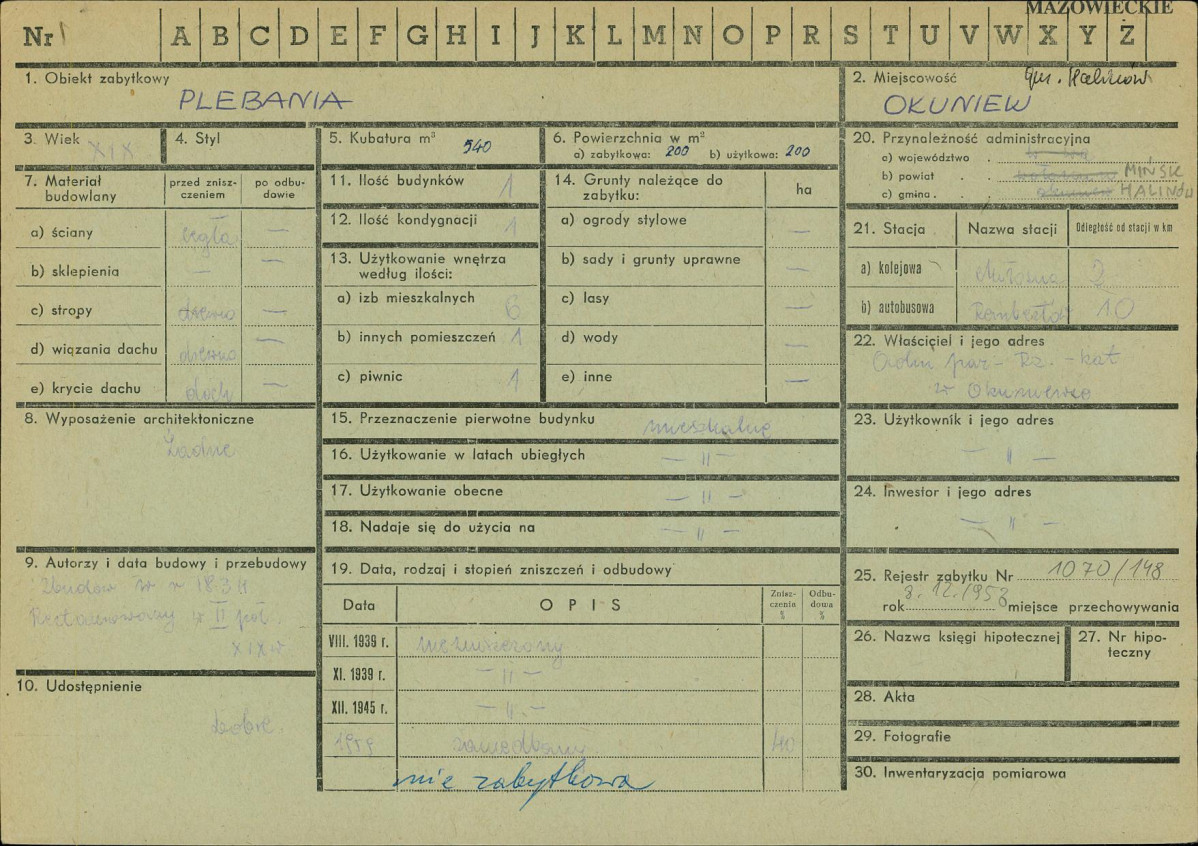 MAZOWIECKIE
Nr A B C D E F G H I J K L M N O P R S T U V W X Y Z
1. Obiekt zabytkowy
PLEBANIA
2. Miejscowość gm. Halinów
OKUNIEW
3. Wiek XIX
4. Styl
5. Kubatura m³ 540
6. Powierzchnia w m²
a) zabytkowa: 200 b) użytkowa: 200
7. Materiał budowlany
przed zniszczeniem
po odbudowie
a) ściany cegła —
b) sklepienia — —
c) stropy drewno —
d) wiązania dachu drewno —
e) krycie dachu dach —
8. Wyposażenie architektoniczne
Żadne
9. Autorzy i data budowy i przebudowy
Zbudow. w r 183
Restaurowany w II poł.
XIX w
10. Udostępnienie
Dobre.
11. Ilość budynków 1
12. Ilość kondygnacji 1
13. Użytkowanie wnętrza
według ilości:
a) izb mieszkalnych 6
b) innych pomieszczeń 1
c) piwnic 1
14. Grunty należące do
zabytku: ha
a) ogrody stylowe —
b) sady i grunty uprawne —
c) lasy —
d) wody —
e) inne —
15. Przeznaczenie pierwotne budynku mieszkalne
16. Użytkowanie w latach ubiegłych — " —
17. Użytkowanie obecne — " —
18. Nadaje się do użycia na — " —
19. Data, rodzaj i stopień zniszczeń i odbudowy
Data OPIS Zniszczenia % Odbudowa %
VIII. 1939 r. niezniszczony
XI. 1939 r. — " —
XII. 1945 r. — " —
1959 zaniedbany 40
nie zabytkowa
20. Przynależność administracyjna
a) województwo .
b) powiat . . MIŃSK
c) gmina . . HALINÓW
21. Stacja Nazwa stacji Odległość od stacji w km
a) kolejowa 2
b) autobusowa Rembertów 10
22. Właściciel i jego adres
par - Rz. - kat
w Okuniewie
23. Użytkownik i jego adres
— " —
24. Inwestor i jego adres
— " —
25. Rejestr zabytku Nr 1070/148
rok 8.12.1958 miejsce przechowywania
26. Nazwa księgi hipotecznej
27. Nr hipoteczny
28. Akta
29. Fotografie
30. Inwentaryzacja pomiarowa